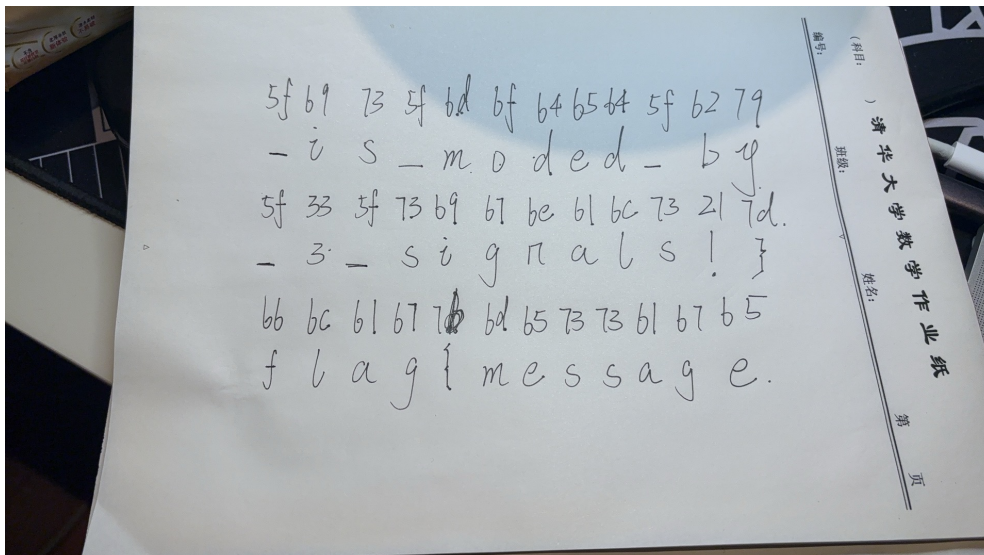 5f 69 73 5f 6d 6f 64 65 64 5f 62 79
_ i s _ m o d e d _ b y
5f 33 5f 73 69 67 6e 61 6c 73 21 7d.
_ 3 _ s i g n a l s ! }
66 6c 61 67 7b 6d 65 73 73 61 67 65
f l a g { m e s s a g e .
(科目: ) 清华大学数学作业纸 第 页
编号: 班级: 姓名: